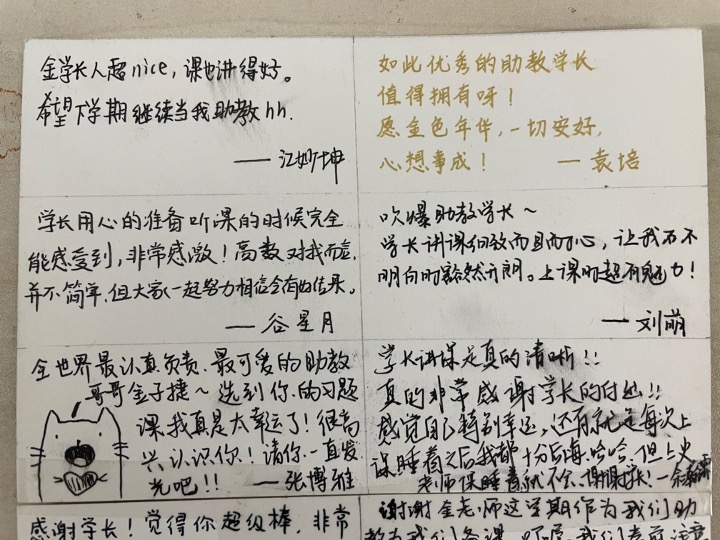 金学长人超nice,课也讲得好。
希望下学期继续当我助教hh.
——江妙坤
如此优秀的助教学长
值得拥有呀!
愿金色年华,一切安好,
心想事成! ——袁培
学长用心的准备听课的时候完全
能感受到,非常感激!高数对我而言,
并不简单,但大家一起努力相信会有好结果。
——谷星月
吹爆助教学长~
学长讲课细致而且耐心,让我在不
明白时豁然开朗。上课时超有魅力!
——刘萌
全世界最认真负责、最可爱的助教
哥哥金子捷~选到你的习题
课我真是太幸运了!很高
兴认识你!请你一直发
光吧!! ——张博雅
学长讲课是真的清晰!!
真的非常感谢学长的付出!!
感觉自己特别幸运,还有就是每次上
课睡着之后我都十分后悔哈哈,但上史
老师课睡着就不会,
感谢学长!觉得你超级棒,非常
谢谢金老师这学期作为我们助